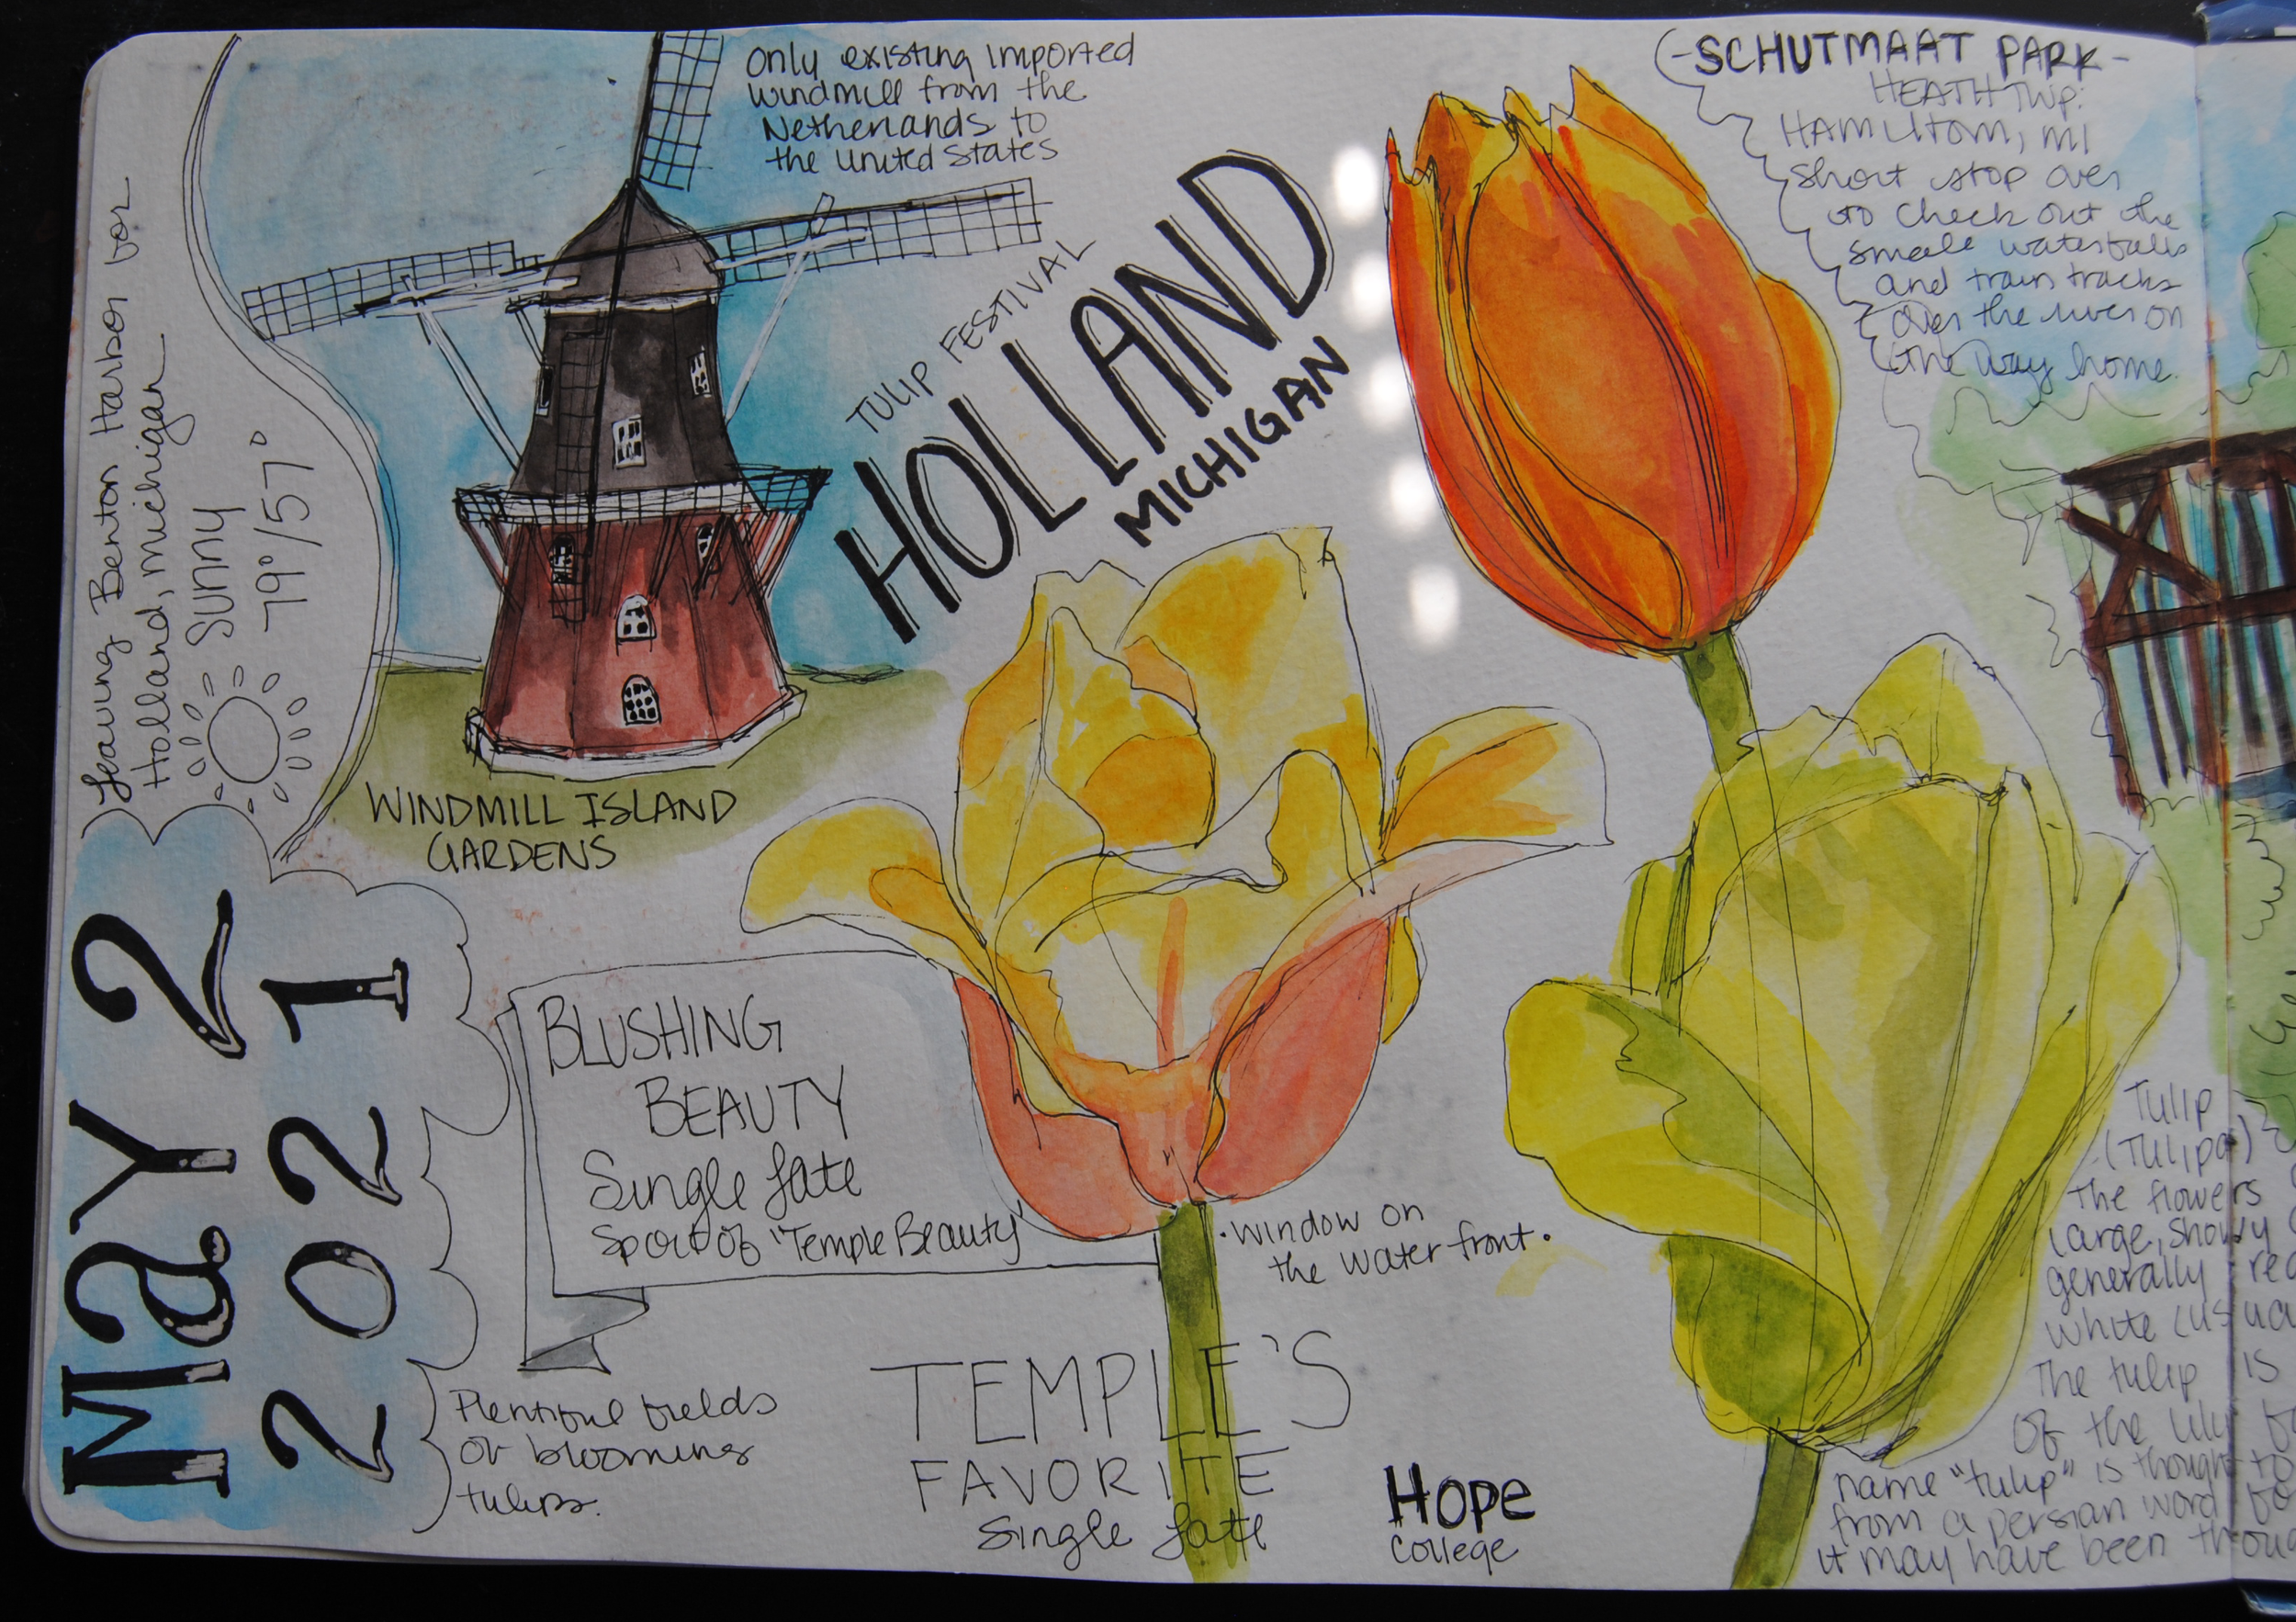 Leaving Benton Harbor for
Holland, Michigan
SUNNY
79°/57°
May 2
2021
Only existing imported
windmill from the
Netherlands to
the United States
WINDMILL ISLAND
GARDENS
TULIP FESTIVAL
HOLLAND
MICHIGAN
BLUSHING
BEAUTY
Single Late
Sport of "Temple Beauty"
Plentiful fields
of blooming
tulips.
• Window on
the Waterfront •
TEMPLE'S
FAVORITE
Single Late
HOPE
College
-SCHUTMAAT PARK-
HEATH TWP.
HAMILTON, MI
Short stop over
to check out the
small waterfalls
and train tracks
over the river on
the way home.
Tulip
(Tulipa)
The flowers
large, showy
generally red
white (usua
The tulip is
of the lily fa
name "tulip" is thought to
from a persian word fo
it may have been thoug